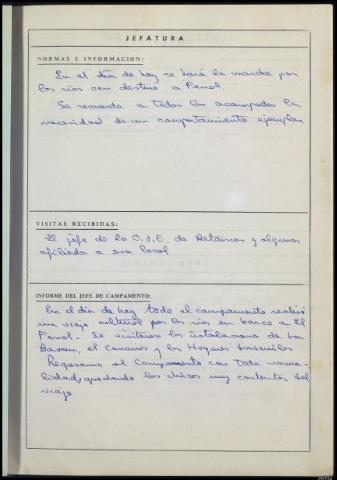 JEFATURA
NORMAS E INFORMACION:
En el día de hoy se hará la marcha por
las rías con destino a Ferrol.
Se recuerda a todos los acampados la
necesidad de un comportamiento ejemplar
VISITAS RECIBIDAS:
El jefe de la O.J.E. de Betanzos y algunos
afiliados a ese local
INFORME DEL JEFE DE CAMPAMENTO:
En el día de hoy todo el campamento realizó
un viaje cultural por las rías en barco a El
Ferrol. Se visitaron las instalaciones de la
Bazan, el Canarias y los Hogares Juveniles
Regresamos al Campamento con toda norma-
lidad, quedando los chicos muy contentos del
viaje